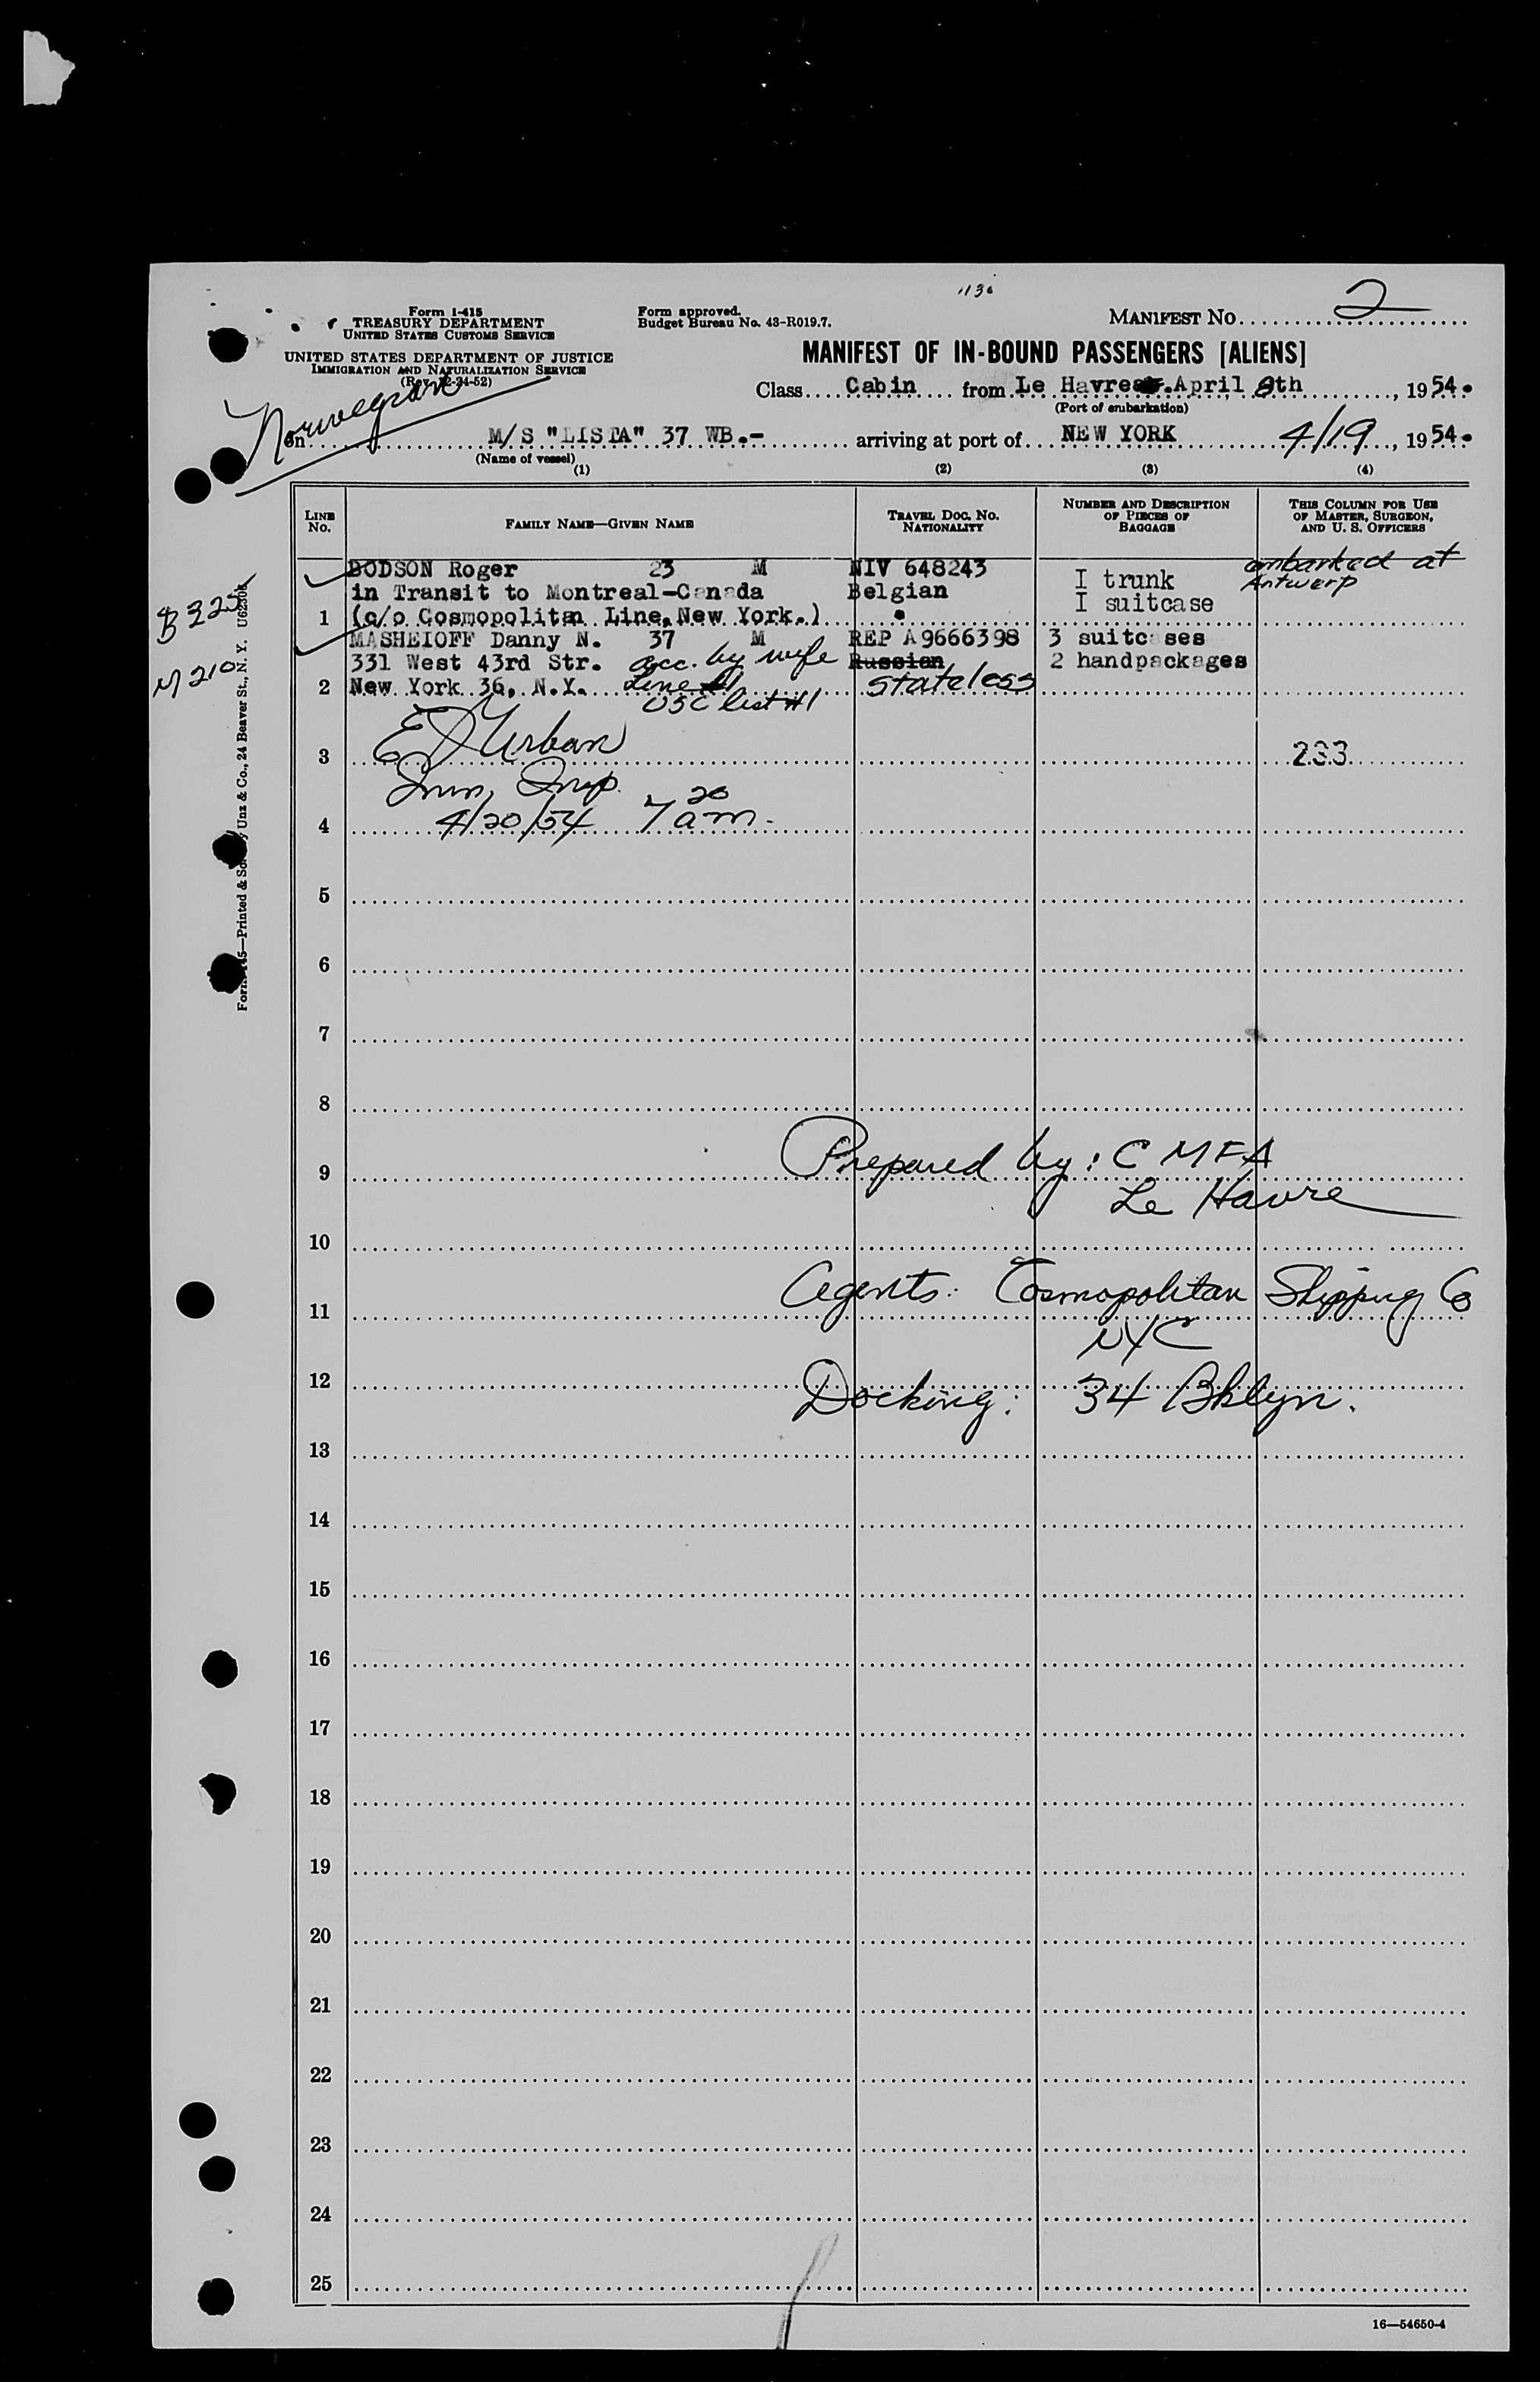 1136
Form I-415
TREASURY DEPARTMENT
UNITED STATES CUSTOMS SERVICE
UNITED STATES DEPARTMENT OF JUSTICE
IMMIGRATION AND NATURALIZATION SERVICE
(Rev. 12-24-52)
Form approved.
Budget Bureau No. 43-R019.7.
MANIFEST NO. 2
MANIFEST OF IN-BOUND PASSENGERS [ALIENS]
Class Cabin from Le Havre April 8th, 1954.
(Port of embarkation)
Norwegian
on M/S "LISTA" 37 WB.- arriving at port of NEW YORK 4/19, 1954.
(Name of vessel)
(1) (2) (3) (4)
LINE NO. FAMILY NAME—GIVEN NAME TRAVEL DOC. NO. NATIONALITY NUMBER AND DESCRIPTION OF PIECES OF BAGGAGE THIS COLUMN FOR USE OF MASTER, SURGEON, AND U. S. OFFICERS
BODSON Roger 23 M NIV 648243 I trunk embarked at
in Transit to Montreal-Canada Belgian I suitcase Antwerp
1 (c/o Cosmopolitan Line, New York.)
MASHEIOFF Danny N. 37 M REP A9666398 3 suitcases
331 West 43rd Str. acc. by wife Russian 2 handpackages
2 New York 36, N.Y. Line #1 stateless
USC list #1
B 325
M 210
Printed & Sold by Unz & Co., 24 Beaver St., N. Y. U62306
3 E J Urban 233
Imm. Insp.
4 4/20/54 7 20 am.
5
6
7
8
9 Prepared by: C M F A
Le Havre
10
11 Agents: Cosmopolitan Shipping Co
NYC
12 Docking: 34 Bklyn.
13
14
15
16
17
18
19
20
21
22
23
24
25
16—54650-4